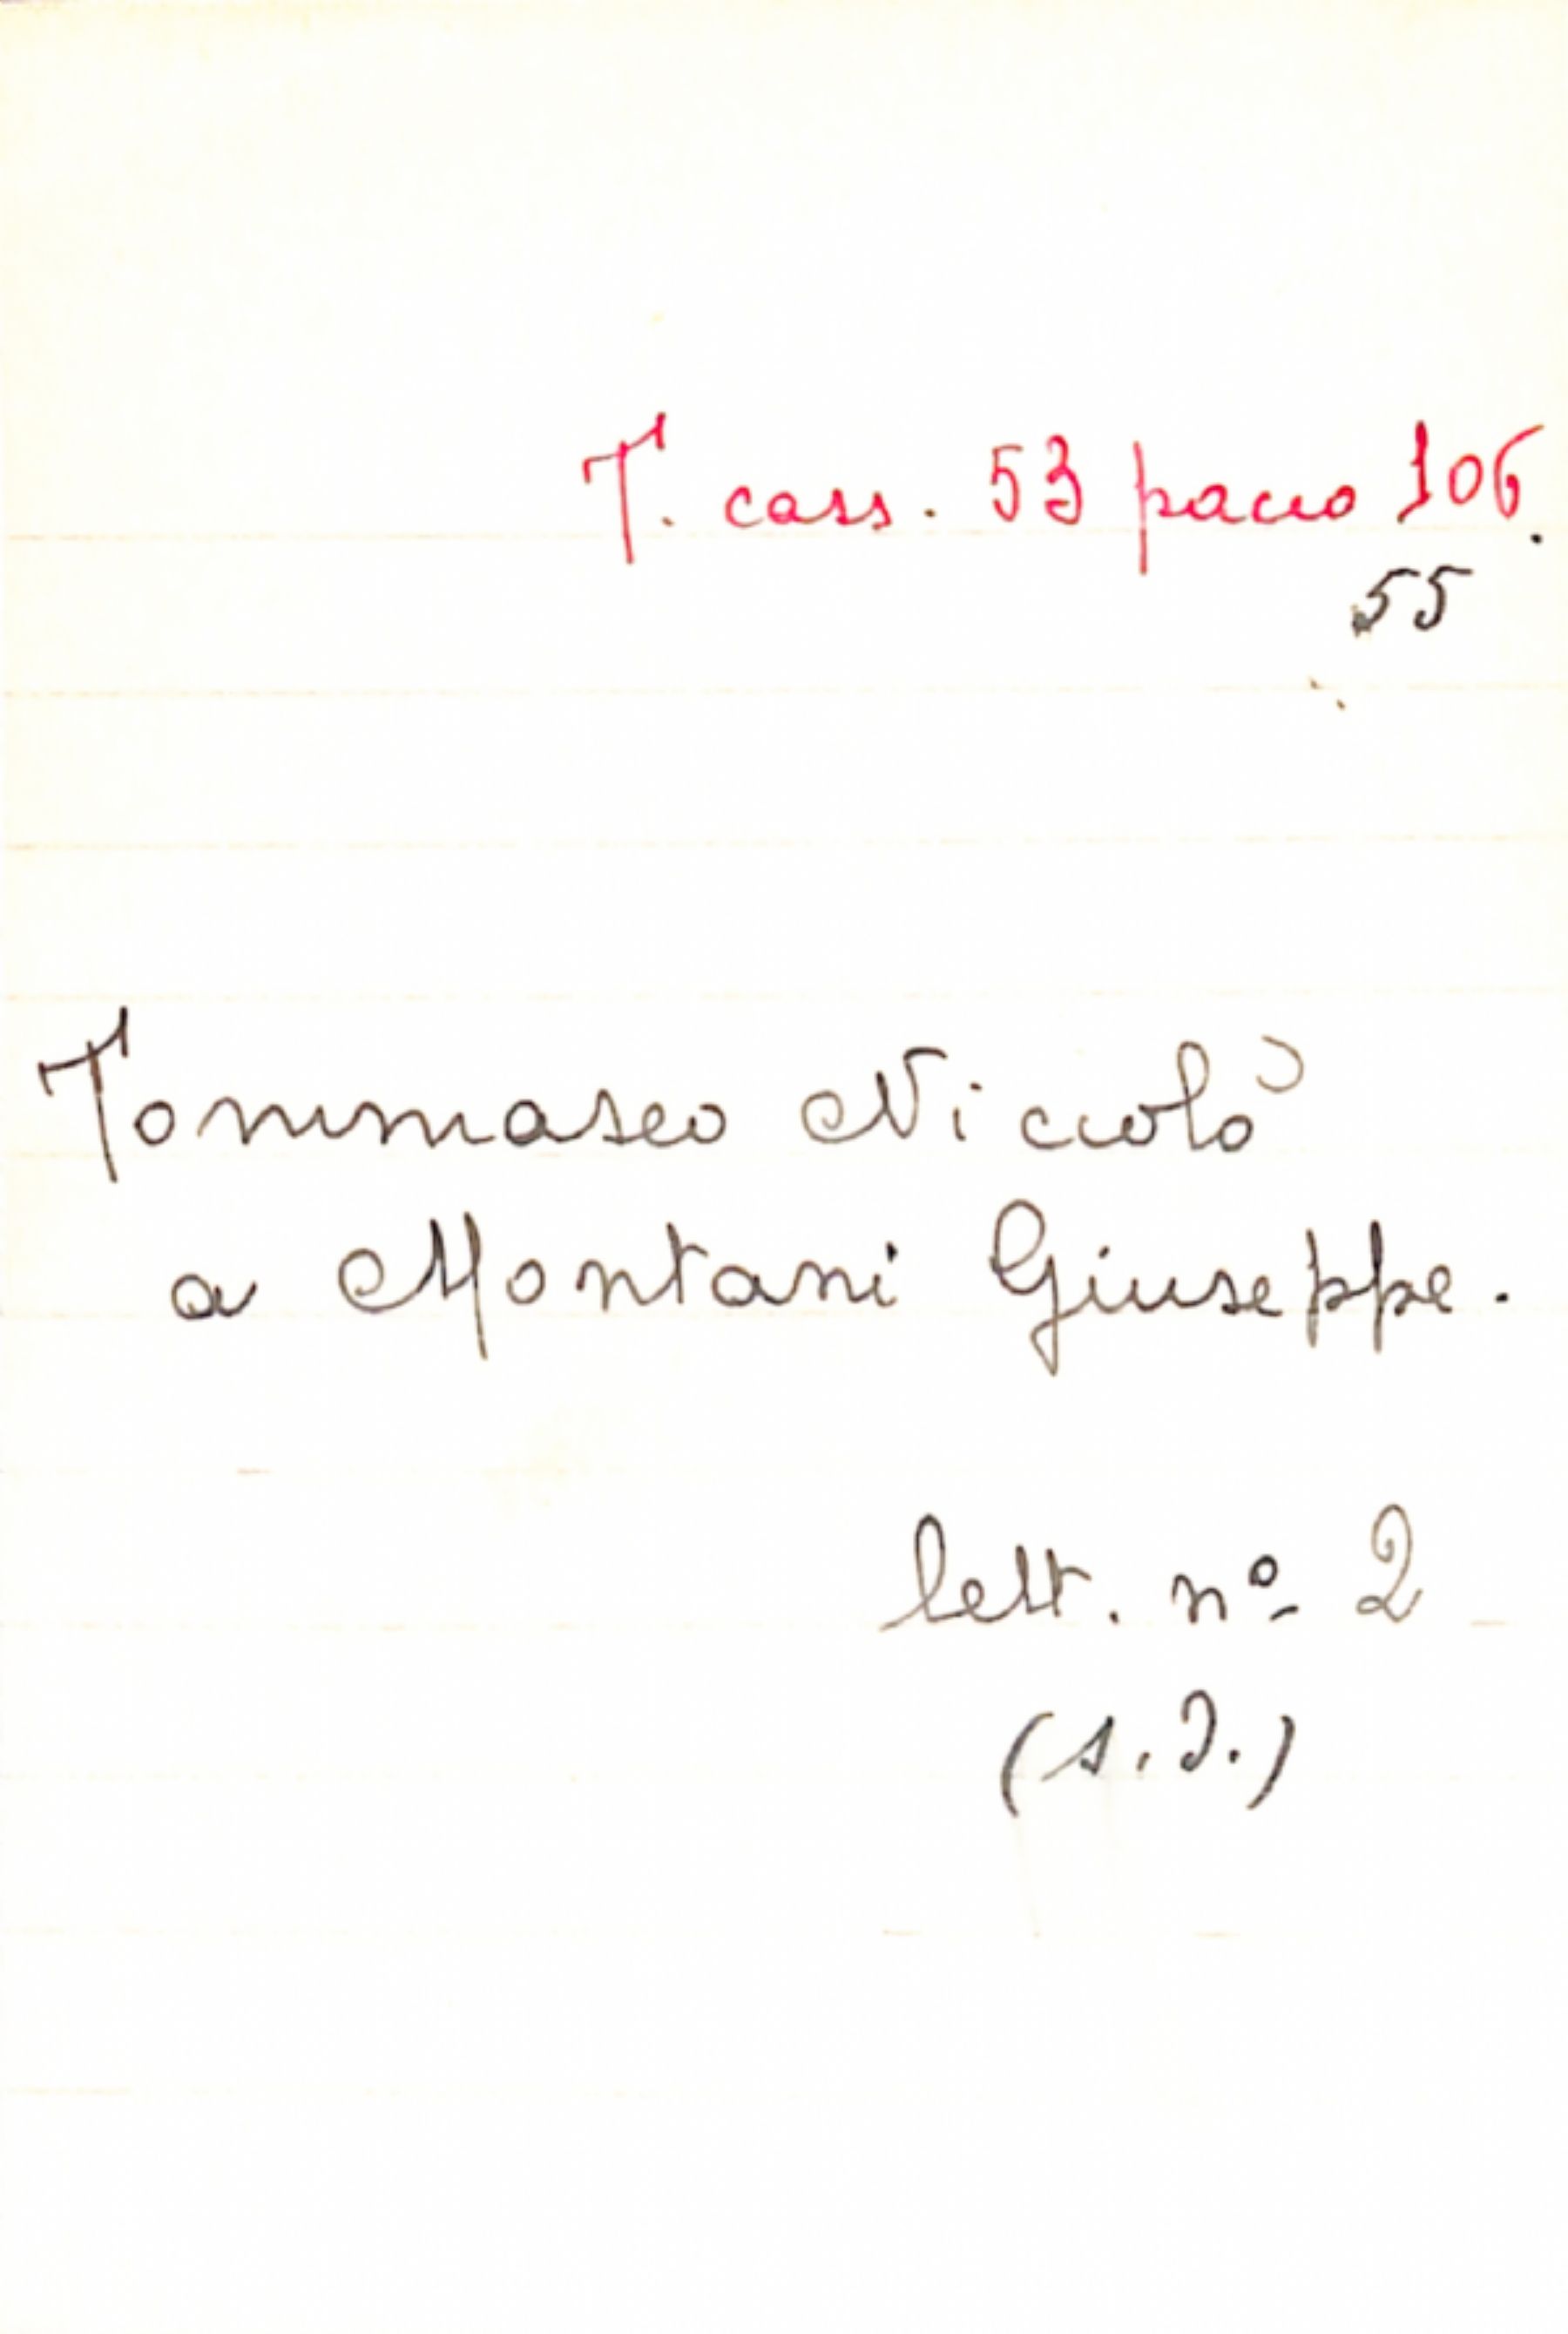 T. cass. 53 pacco 106.
55
Tommaseo Niccolò
a Montani Giuseppe.
lett. nº 2
(s.d.)